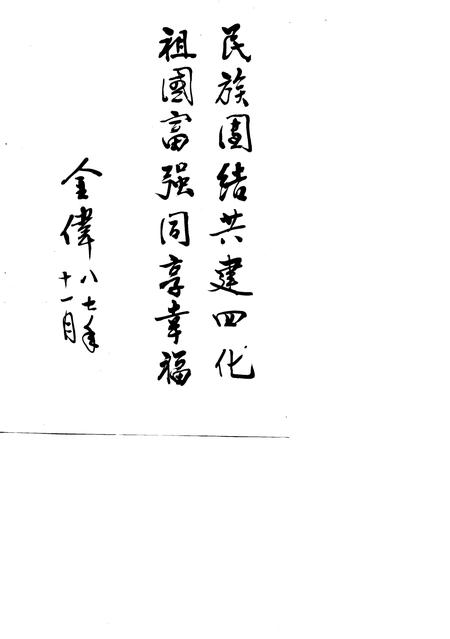 民族團結共建四化
祖國富强同享幸福
金偉
八七年
十一月